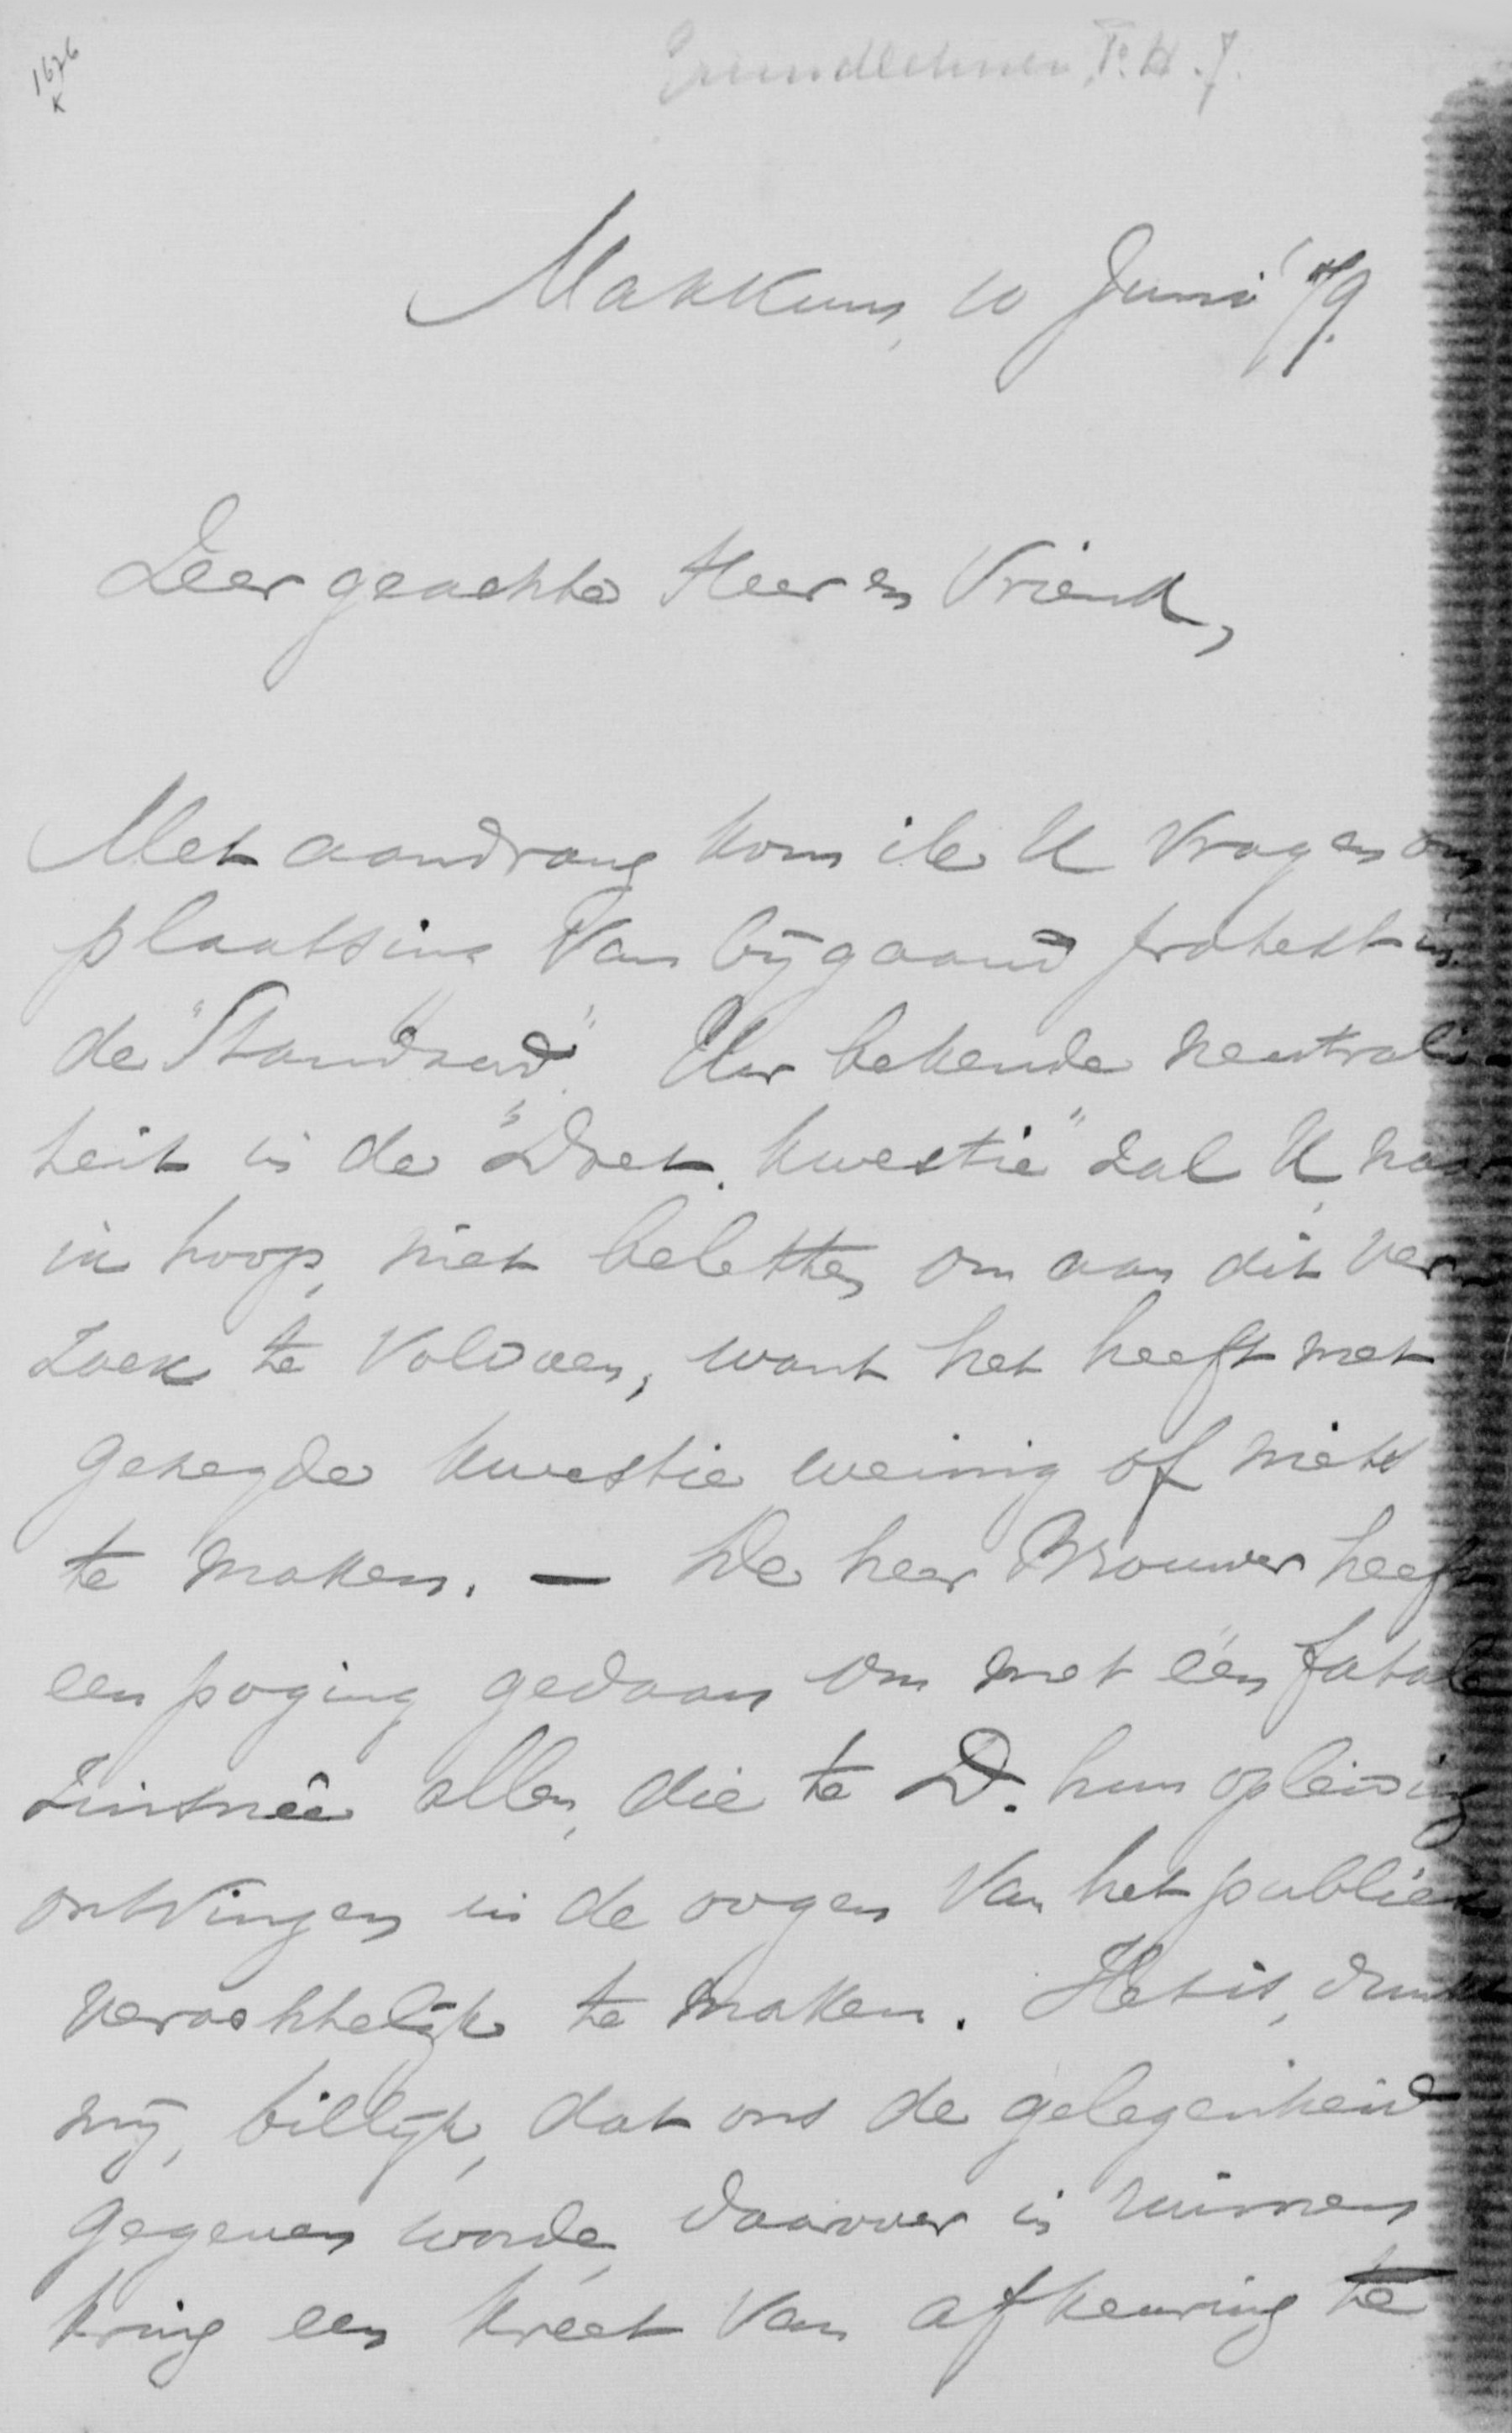 1626
K
Grundlehner, F. H. J.
Makkum, 10 Juni '79.
Zeer geachte Heer en Vriend,
Met aandrang kom ik U vragen om
plaatsing van bijgaand protest in
de "Standaard". Uw bekende neutrali-
teit in de "Doet. kwestie" zal U, naar
ik hoop, niet beletten om aan dit ver-
zoek te voldoen, want het heeft met
gezegde kwestie weinig of niets
te maken. — De heer Brouwer heeft
een poging gedaan om met één fatale
zinsneê allen, die te D. hun opleiding
ontvingen in de oogen van het publiek
verachtelijk te maken. Het is, dunkt
mij, billijk, dat ons de gelegenheid
gegeven worde, daarover in ruimen
kring een kreet van afkeuring te